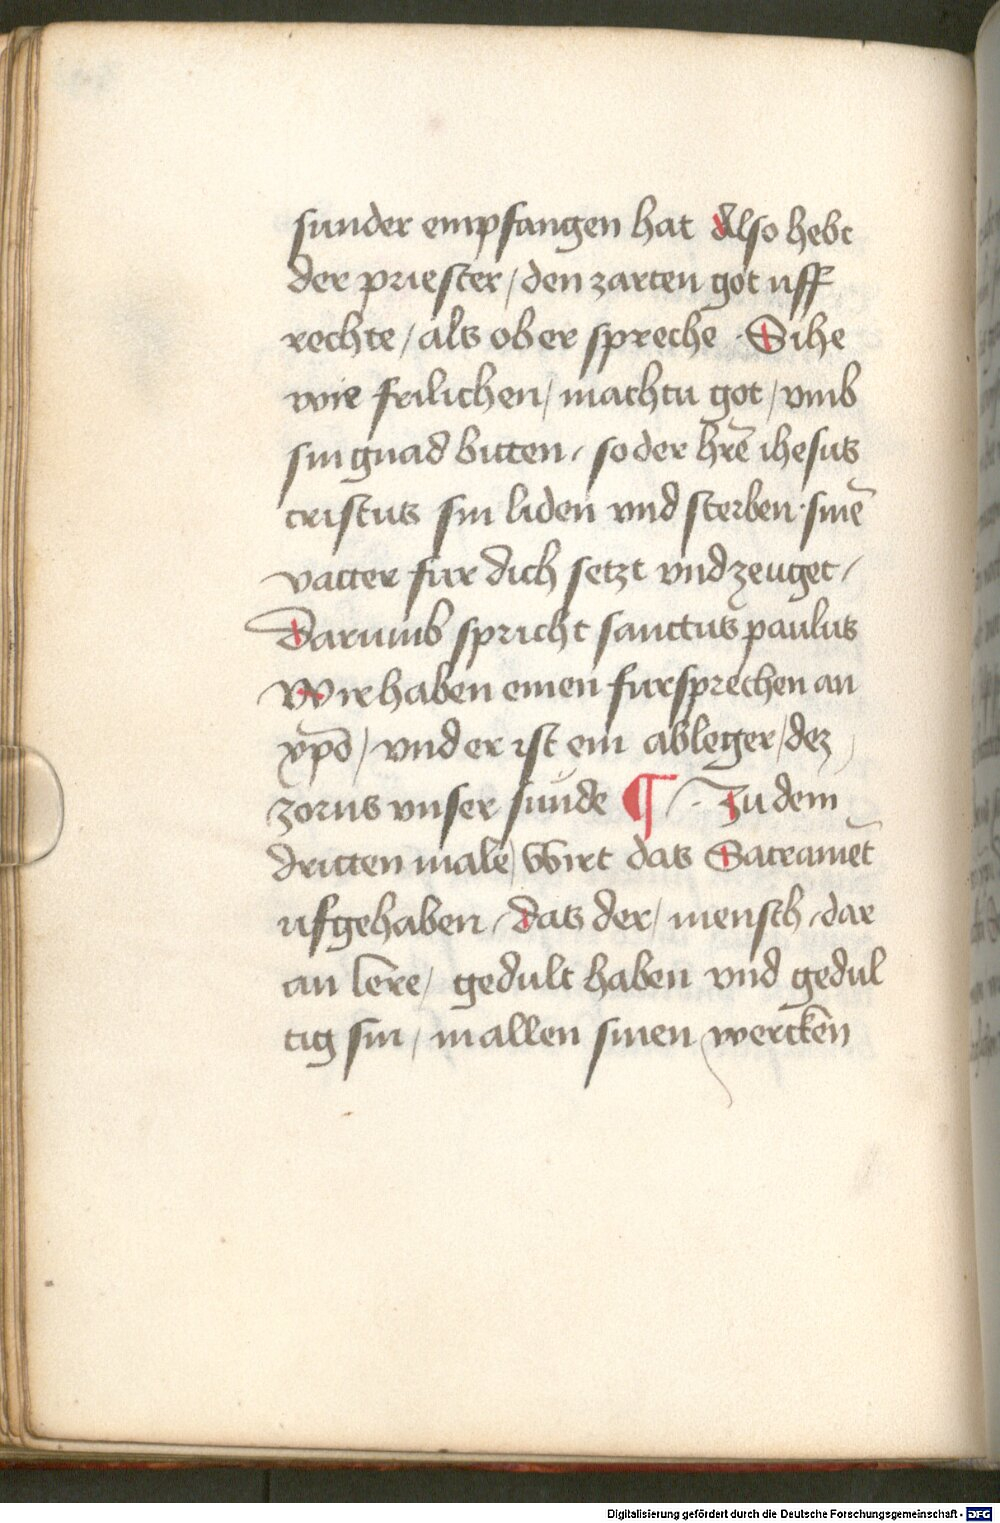 sunder empfangen hat Also hebt
der priester / den zarten got uff
rechte / als ob er spreche · Sihe
wie frilichen / machtu got / vmb
sin gnad bitten / so der hr̄e ihesus
cristus sin liden vnd sterben · sinē
vatter fur dich setzt vnd zeuget /
Darumb spricht sanctus paulus
Wir haben einen fursprechen an
xp̄o / vnd er ist ein ableger / dez
zorns vnser sunde ¶ / · Zu dem
dritten male / Wirt das Sacramēt
ufgehaben / das der / mensch / dar
an lere / gedult haben vnd gedul
tig sin / in allen sinen wercken
Digitalisierung gefördert durch die Deutsche Forschungsgemeinschaft - DFG